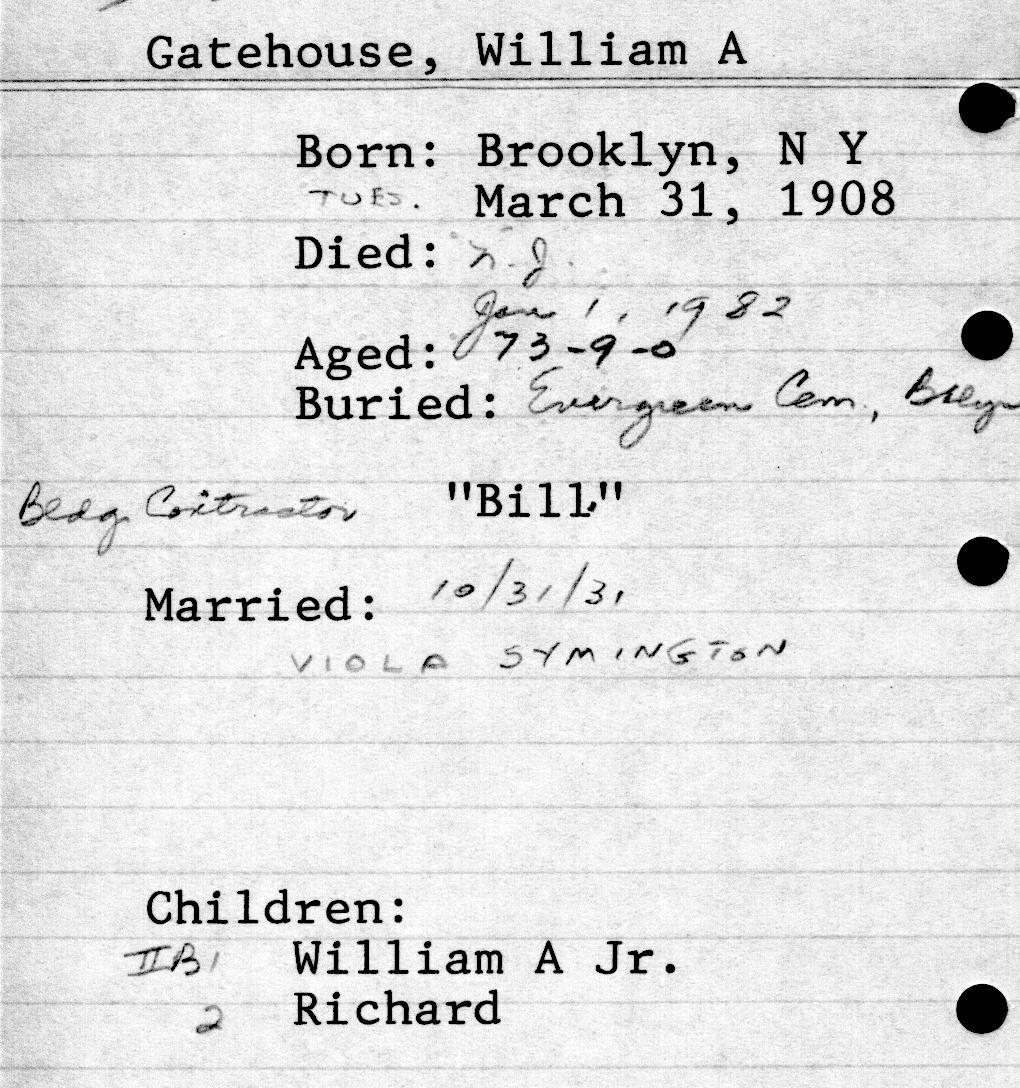 Gatehouse, William A
Born: Brooklyn, N Y
TUES. March 31, 1908
Died: N.J.
Jan 1, 1982
Aged: 73-9-0
Buried: Evergreen Cem., Bklyn
Bldg Contractor "Bill"
Married: 10/31/31
VIOLA SYMINGTON
Children:
IIB1 William A Jr.
2 Richard